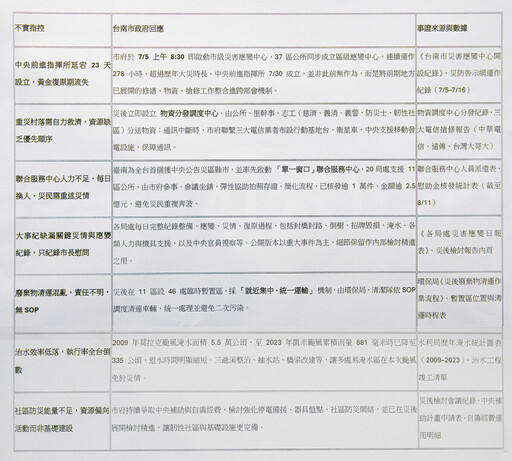 不實指控
台南市政府回應
事證來源與數據
中央前進指揮所延宕 23 天
設立，黃金復原期流失
市府於 7/5 上午 8:30 即啟動市級災害應變中心，37 區公所同步成立區級應變中心，連續運作
278 小時，超過歷年大災時長，中央前進指揮所 7/30 成立，並非此前無作為，而是將前期地方已
展開的修繕、物資、搶修工作整合進跨部會機制。
《台南市災害應變中心開
設紀錄》、災防告示網運作
紀錄（7/5–7/16）
重災村落需自力救濟，資源缺
乏優先順序
災後立即設立 物資分發調度中心，由公所、里幹事，志工（慈濟、義消、義警、防災士、韌性社
區）分送物資；通訊中斷時，市府聯繫三大電信業者布設行動基地台、衛星車，中央支援移動發
電設施，保障通訊。
物資調度中心分發紀錄、三
大電信搶修報告（中華電
信，遠傳，台灣大哥大）
聯合服務中心人力不足，每日
換人，災民需重述災情
臺南為全台首個獲中央公告災區縣市，並率先啟動 「單一窗口」聯合服務中心，20 局處支援 11
區公所，由市府參事、參議坐鎮，彈性協助拍照存證、簡化流程，已核發逾 1 萬件、金額逾 2.5
億元，避免災民重複奔波。
聯合服務中心人員派遣表、
慰助金核發統計表（截至
8/11）
大事紀缺漏關鍵災情與應變
紀錄，只紀錄市長慰問
各局處每日完整紀錄整備、應變、災情、復原過程，包括封橋封路、倒樹、招牌毀損、淹水、各
類人力與機具支援，以及中央官員視察等、公開版本以重大事件為主，細節保留作內部檢討精進
之用。
《各局處災害應變日報
表》、災後檢討報告內頁
廢棄物清運混亂，責任不明，
無 SOP
災後在 11 區設 46 處臨時暫置區，採「就近集中、統一運輸」機制，由環保局、清潔隊依 SOP
調度清運車輛，統一處理並避免二次污染。
環保局《災後廢棄物清運作
業流程》、暫置區位置與清
運時程表
治水效率低落，執行率全台倒
數
2009 年莫拉克颱風淹水面積 5.5 萬公頃，至 2023 年凱米颱風累積雨量 881 毫米時已降至
335 公頃，退水時間明顯縮短。三爺溪整治、抽水站、橋梁改建等，讓多處易淹水區在本次颱風
免於災情。
水利局歷年淹水統計圖表
（2009–2023）、治水工程
竣工清單
社區防災能量不足，資源偏向
活動而非基礎建設
市府持續爭取中央補助與自籌經費，檢討強化停電備援、器具盤點、社區防災開結，並已在災後
展開檢討精進，讓韌性社區與基礎設施更完備。
災後檢討會議紀錄、中央補
助計畫申請表、自籌經費運
用明細